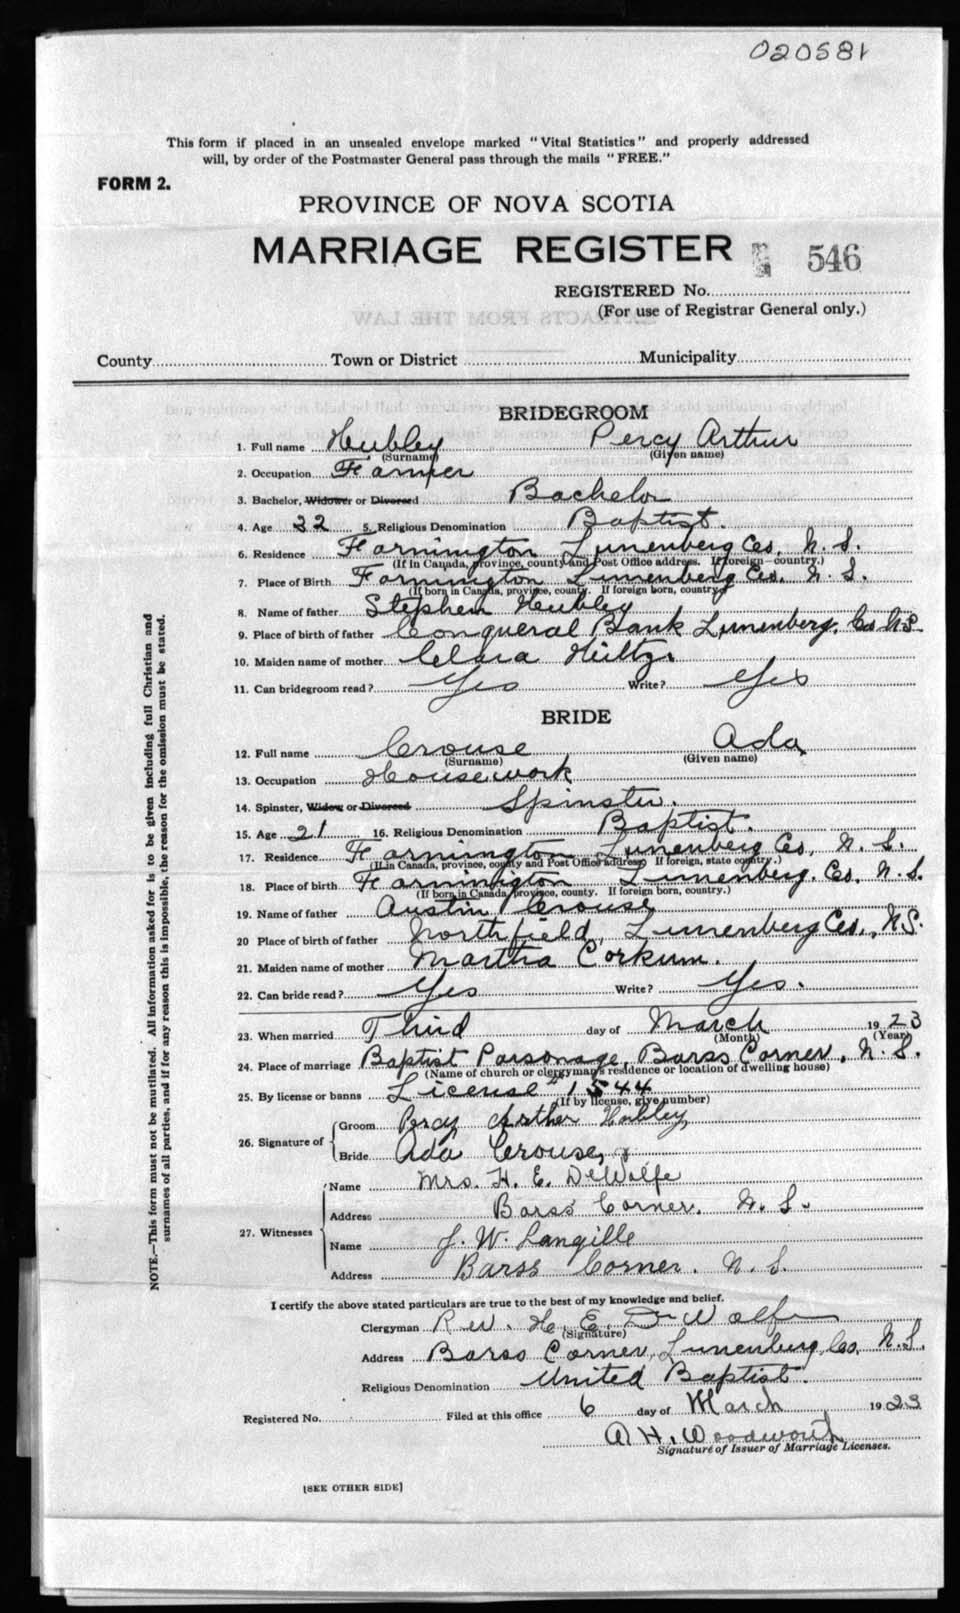 020581
This form if placed in an unsealed envelope marked "Vital Statistics" and properly addressed
will, by order of the Postmaster General pass through the mails "FREE."
FORM 2.
PROVINCE OF NOVA SCOTIA
MARRIAGE REGISTER 546
REGISTERED No.
(For use of Registrar General only.)
County Town or District Municipality
BRIDEGROOM
1. Full name Hubley Percy Arthur
(Surname) (Given name)
2. Occupation Farmer
3. Bachelor, Widower or Divorced Bachelor
4. Age 32 5. Religious Denomination Baptist.
6. Residence Farmington Lunenberg Co. N. S.
(If in Canada, province, county and Post Office address. If foreign—country.)
7. Place of Birth Farmington Lunenberg Co. N. S.
(If born in Canada, province, county. If foreign born, country)
8. Name of father Stephen Hubley
9. Place of birth of father Conqueral Bank Lunenberg, Co N.S.
10. Maiden name of mother Clara Hiltz.
11. Can bridegroom read? Yes Write? Yes
BRIDE
12. Full name Crouse Ada
(Surname) (Given name)
13. Occupation Housework
14. Spinster, Widow or Divorced Spinster.
15. Age 21 16. Religious Denomination Baptist.
17. Residence Farmington Lunenberg Co, N. S.
(If in Canada, province, county and Post Office address. If foreign, state country.)
18. Place of birth Farmington Lunenberg. Co, N. S.
(If born in Canada, province, county. If foreign born, country.)
19. Name of father Austin Crouse
20 Place of birth of father Northfield, Lunenberg Co., N.S.
21. Maiden name of mother Martha Corkum.
22. Can bride read? Yes Write? Yes.
23. When married Third day of March 1923
(Month) (Year)
24. Place of marriage Baptist Parsonage, Barss Corner, N. S.
(Name of church or clergyman's residence or location of dwelling house)
25. By license or banns License # 1544
(If by license, give number)
26. Signature of Groom Percy Arthur Hubley
Bride Ada Crouse
27. Witnesses Name Mrs. H. E. DeWolfe
Address Barss Corner. N. S.
Name J. W. Langille
Address Barss Corner. N. S.
I certify the above stated particulars are true to the best of my knowledge and belief.
Clergyman Rev. H. E. DeWolfe
(Signature)
Address Barss Corner, Lunenburg Co. N.S.
Religious Denomination United Baptist.
Registered No. Filed at this office 6 day of March 1923
A H. Woodworth
Signature of Issuer of Marriage Licenses.
[SEE OTHER SIDE]
NOTE.—This form must not be mutilated. All information asked for is to be given including full Christian and
surnames of all parties, and if for any reason this is impossible, the reason for the omission must be stated.